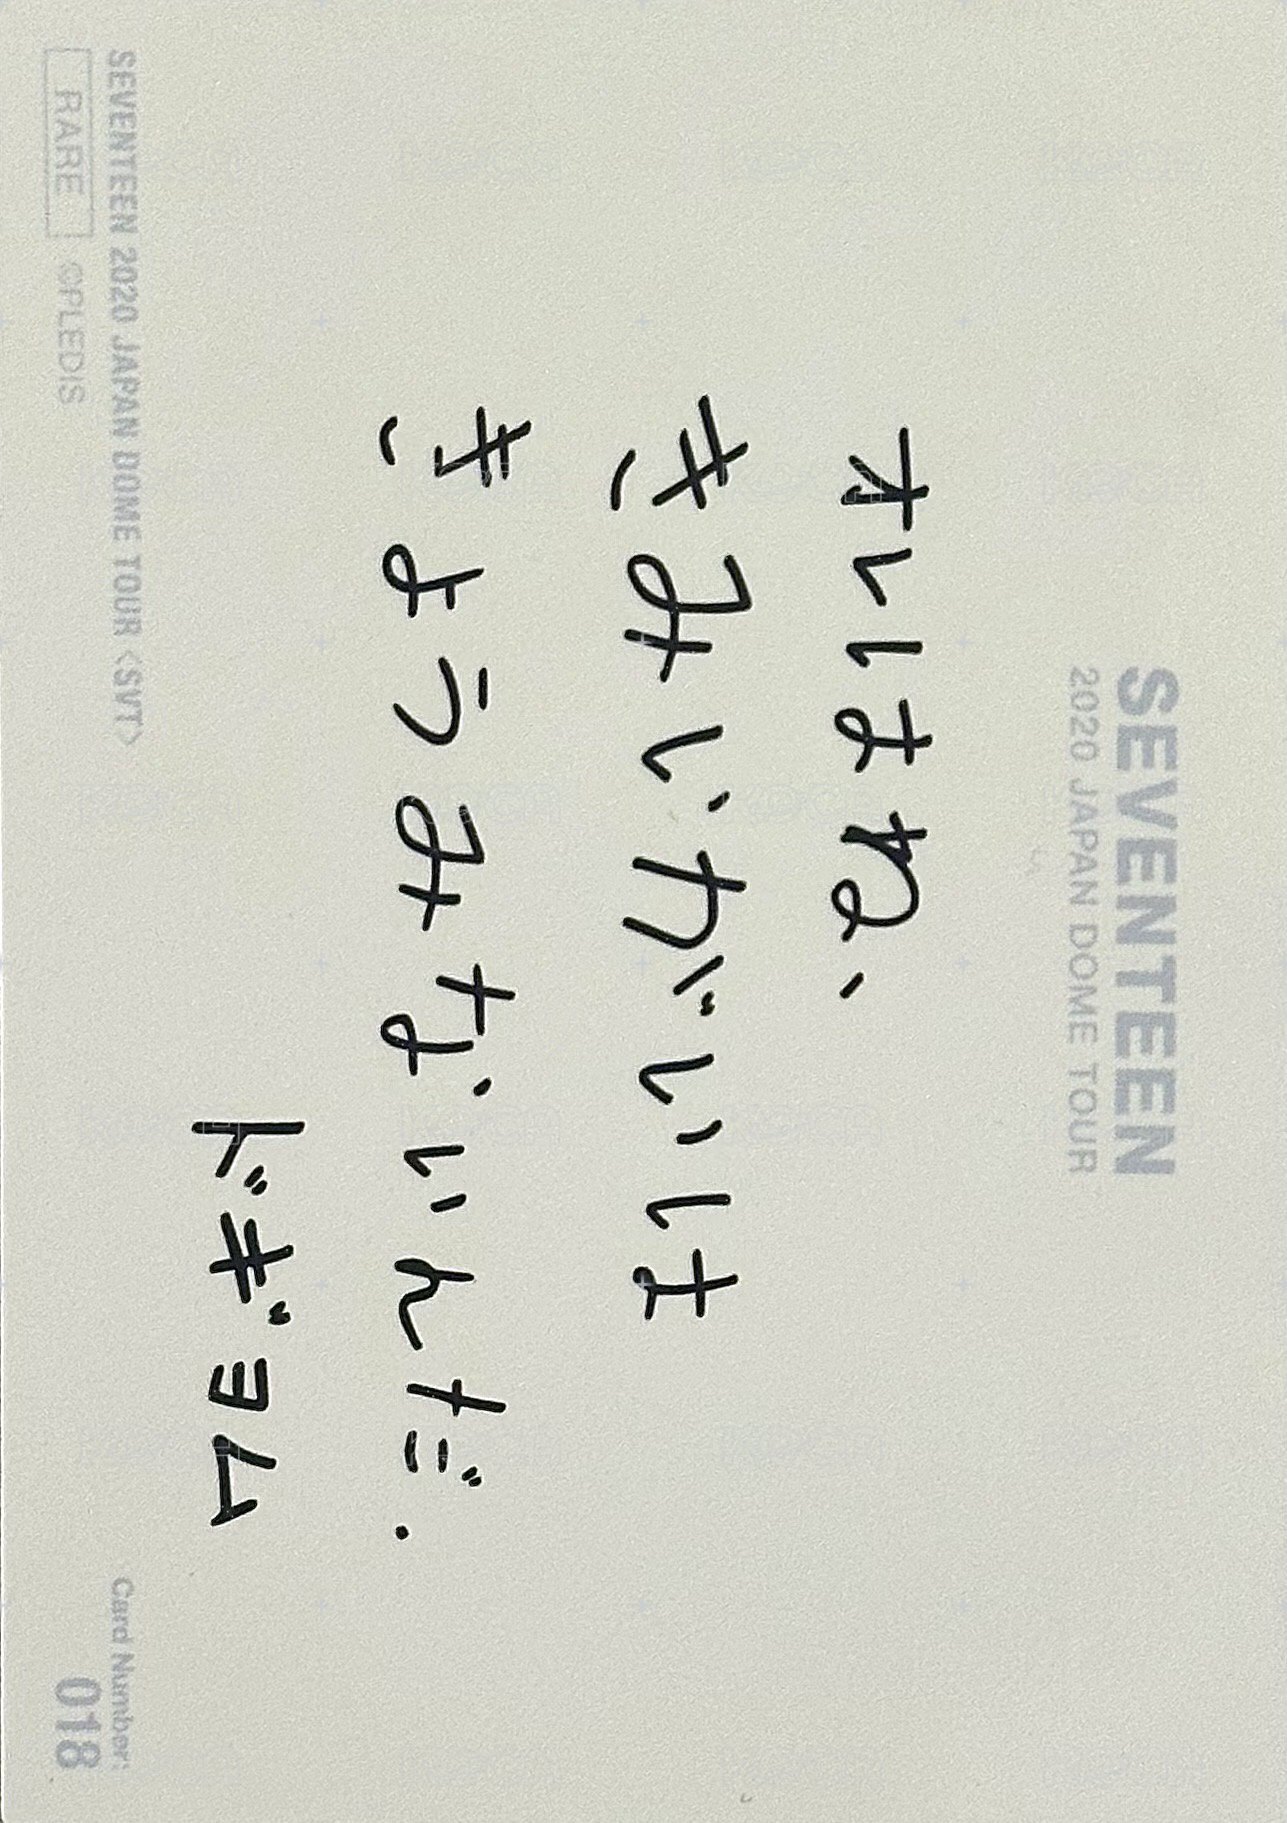 SEVENTEEN
2020 JAPAN DOME TOUR
オレはね、
きみいがいは
きょうみないんだ.
ドギョム
SEVENTEEN 2020 JAPAN DOME TOUR <SVT>
Card Number:
RARE ©PLEDIS
018